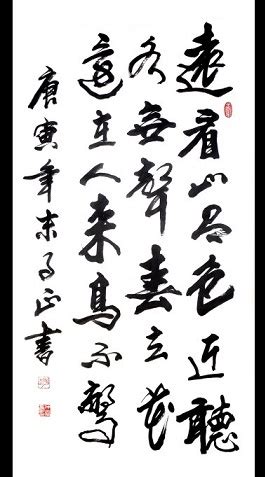 遠看山有色近聽
水無聲春去花
還在人來鳥不驚
庚寅年朱乃正書